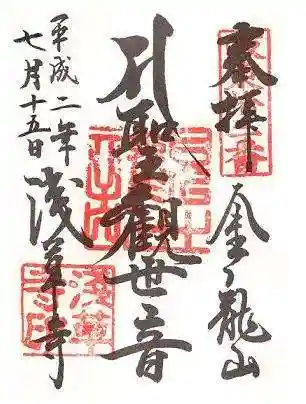 奉拝
金龍山
聖觀世音
平成二年
七月十五日
浅草寺